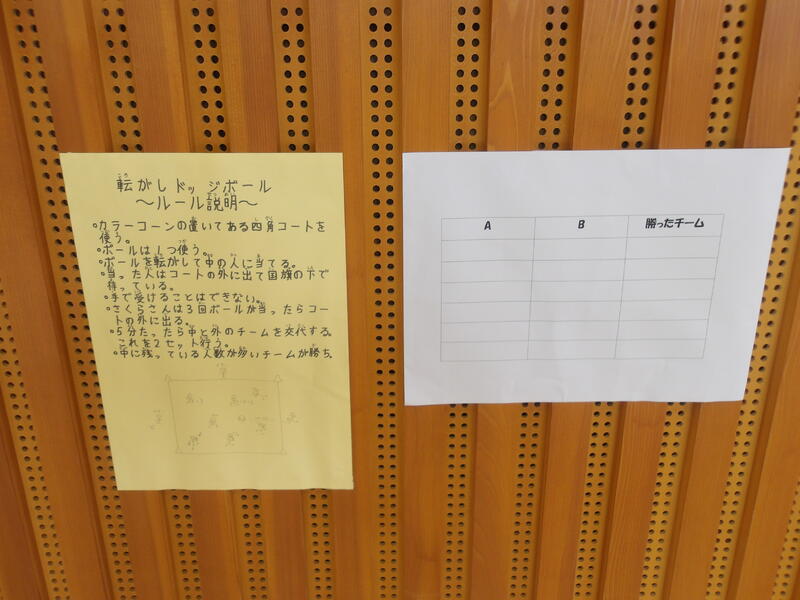 転がしドッジボール
～ルール説明～
・カラーコーンの置いてある四角コートを
使う。
・ボールは1つ使う。
・ボールを転がして中の人に当てる。
・当った人はコートの外に出て国旗の下で
待っている。
・手で受けることはできない。
・さくらさんは3回ボールが当ったらコー
トの外に出る。
・5分たったら中と外のチームを交代する。
これを2セット行う。
・中に残っている人数が多いチームが勝ち。
A B 勝ったチーム